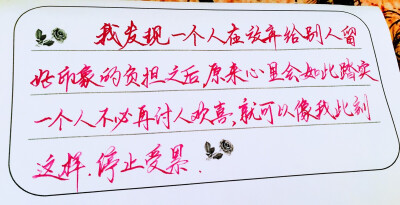 我发现一个人在放弃给别人留
好印象的负担之后,原来心里会如此踏实
一个人不必再讨人欢喜,就可以像我此刻
这样.停止受累.